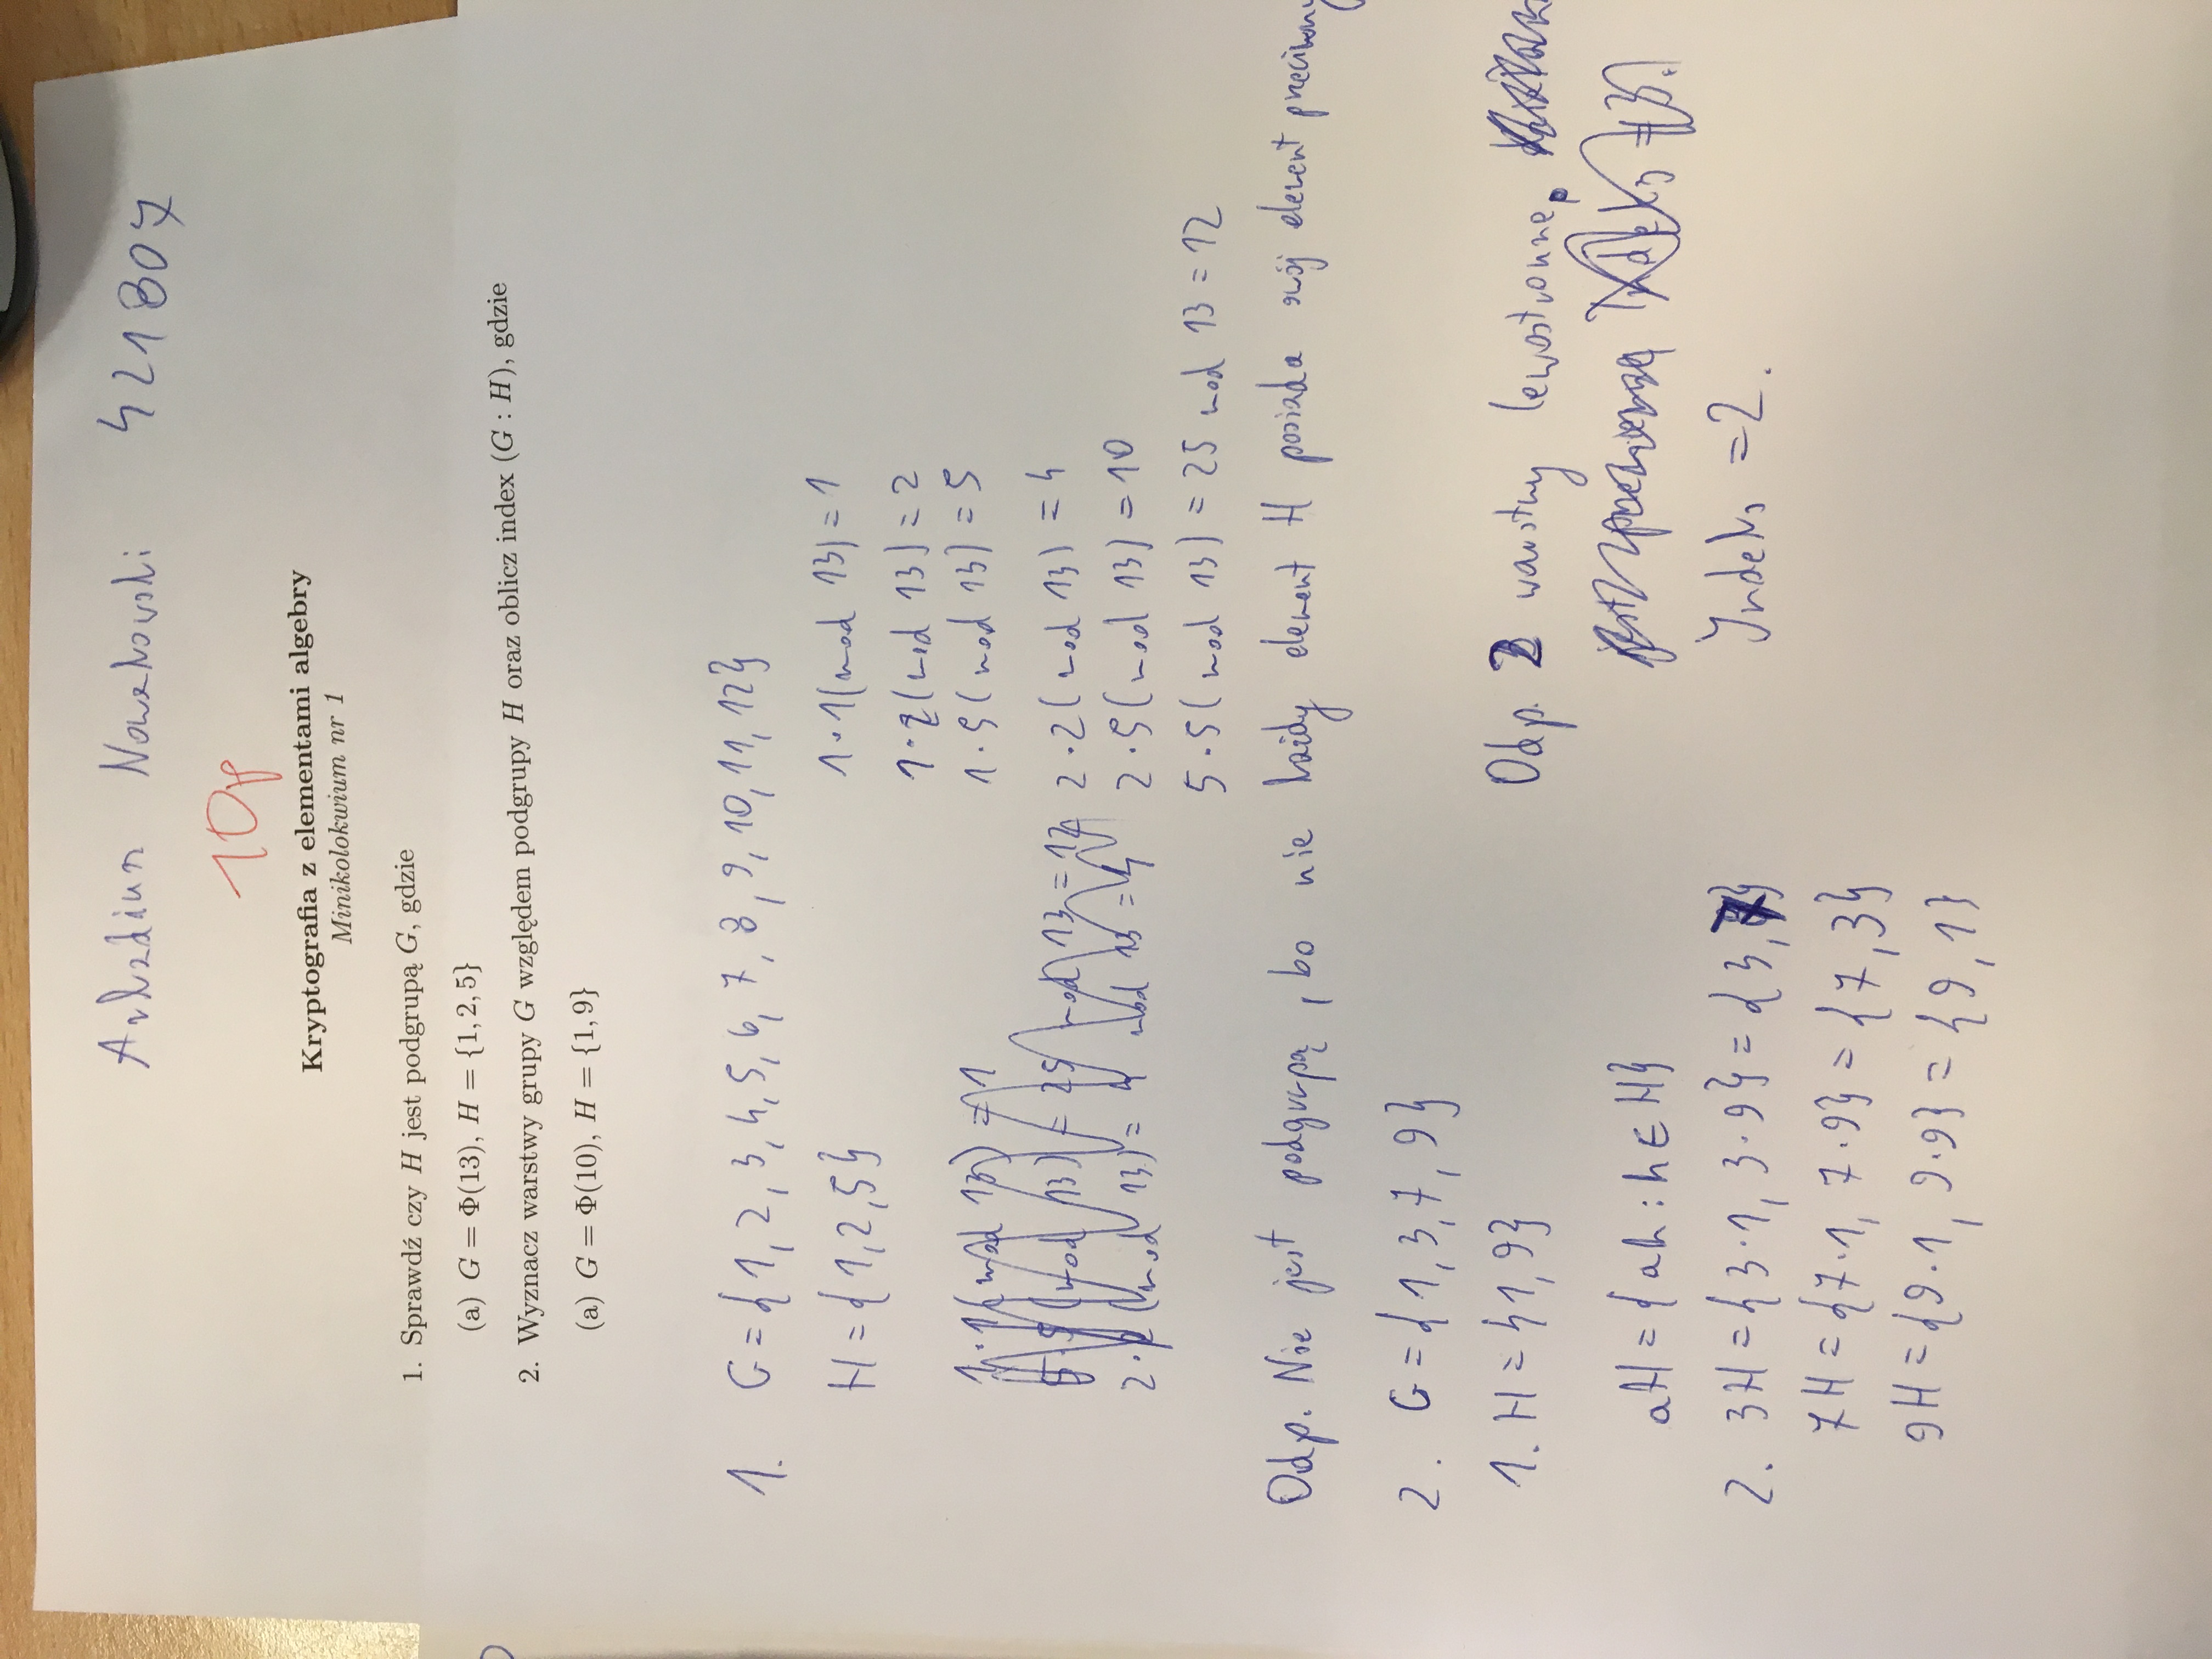 Arkadiusz Nowakowski 421807
10p
Kryptografia z elementami algebry
Minikolokwium nr 1
1. Sprawdź czy H jest podgrupą G, gdzie
(a) G = Φ(13), H = {1, 2, 5}
2. Wyznacz warstwy grupy G względem podgrupy H oraz oblicz index (G : H), gdzie
(a) G = Φ(10), H = {1, 9}
1. G = {1, 2, 3, 4, 5, 6, 7, 8, 9, 10, 11, 12}
H = {1,2,5}
1·1(mod 13) = 1
5·5(mod 13) = 25 mod 13 = 12
2·2(mod 13) = 4 mod 13 = 4
1·1(mod 13) = 1
1·2(mod 13) = 2
1·5(mod 13) = 5
2·2(mod 13) = 4
2·5(mod 13) = 10
5·5(mod 13) = 25 mod 13 = 12
Odp. Nie jest podgrupą, bo nie każdy element H posiada swój element przeciwny
2. G = {1, 3, 7, 9}
1. H = {1, 9}
aH = {ah : h ∈ H}
2. 3H = {3·1, 3·9} = {3, 7}
7H = {7·1, 7·9} = {7, 3}
9H = {9·1, 9·9} = {9, 1}
Odp. 2 warstwy lewostronne.
Indeks = 3.
Indeks = 2.